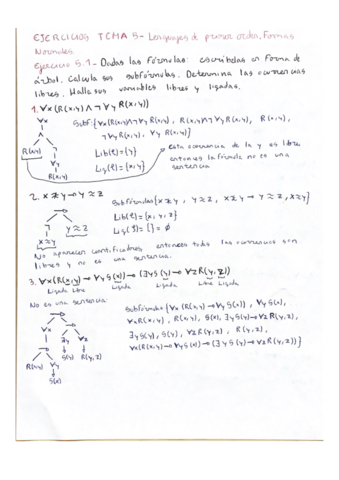 EJERCICIOS TEMA 5- Lenguajes de primer orden, Formas
Normales
Ejercicio 5.1- Dadas las fórmulas: escríbelas en forma de
árbol. Calcula sus subfórmulas. Determina las ocurrencias
libres. Halla sus variables libres y ligadas.
1. ∀x(R(x,y)∧¬∀y R(x,y))
∀x
Subf: {∀x(R(x,y)∧¬∀y R(x,y)), R(x,y)∧¬∀y R(x,y), R(x,y),
¬∀y R(x,y), ∀y R(x,y)}
∧
R(x,y) ¬
∀y
R(x,y)
Lib(ξ)={y}
Lig(ξ)={x,y}
esta ocurrencia de la y es libre,
entonces la fórmula no es una
sentencia.
2. x≠y→y≈z
Subfórmulas{x≠y, y≈z, x≠y→y≈z, x≈y}
→
¬ y≈z
x≈y
Lib(ξ)={x,y,z}
Lig(ξ)={}=∅
No aparecen cuantificadores entonces todas las ocurrencias son
libres y no es una sentencia.
3. ∀x(R(x,y)→∀y S(x))→(∃y S(y)→∀z R(y,z))
Ligada Libre Ligada Ligada Libre Ligada
No es una sentencia.
Subfórmulas {∀x(R(x,y)→∀y S(x)), ∀y S(x),
R(x,y), S(x), ∃y S(y)→∀z R(y,z),
∃y S(y), S(y), ∀z R(y,z), R(y,z),
∀x(R(x,y)→∀y S(x))→(∃y S(y)→∀z R(y,z))}
→
∀x →
→ ∃y ∀z
R(x,y) ∀y S(y) R(y,z)
S(x)